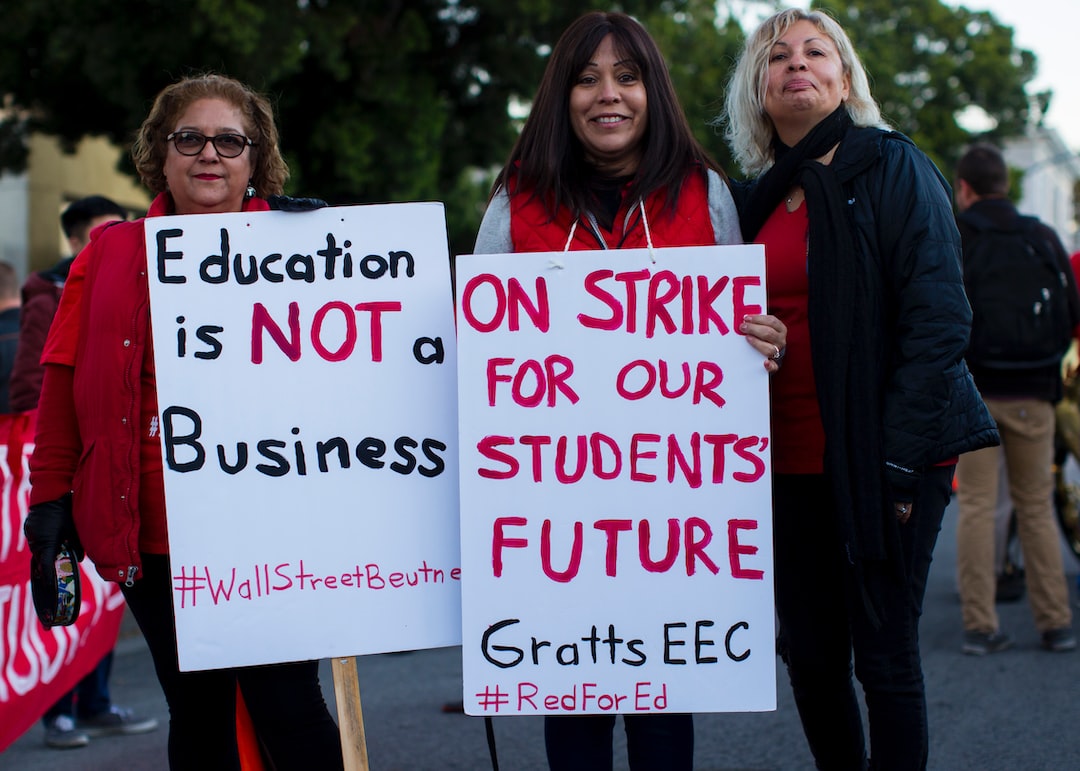 Education
is NOT a
Business
#WallStreetBeutne
ON STRIKE
FOR OUR
STUDENTS'
FUTURE
Gratts EEC
#RedForEd